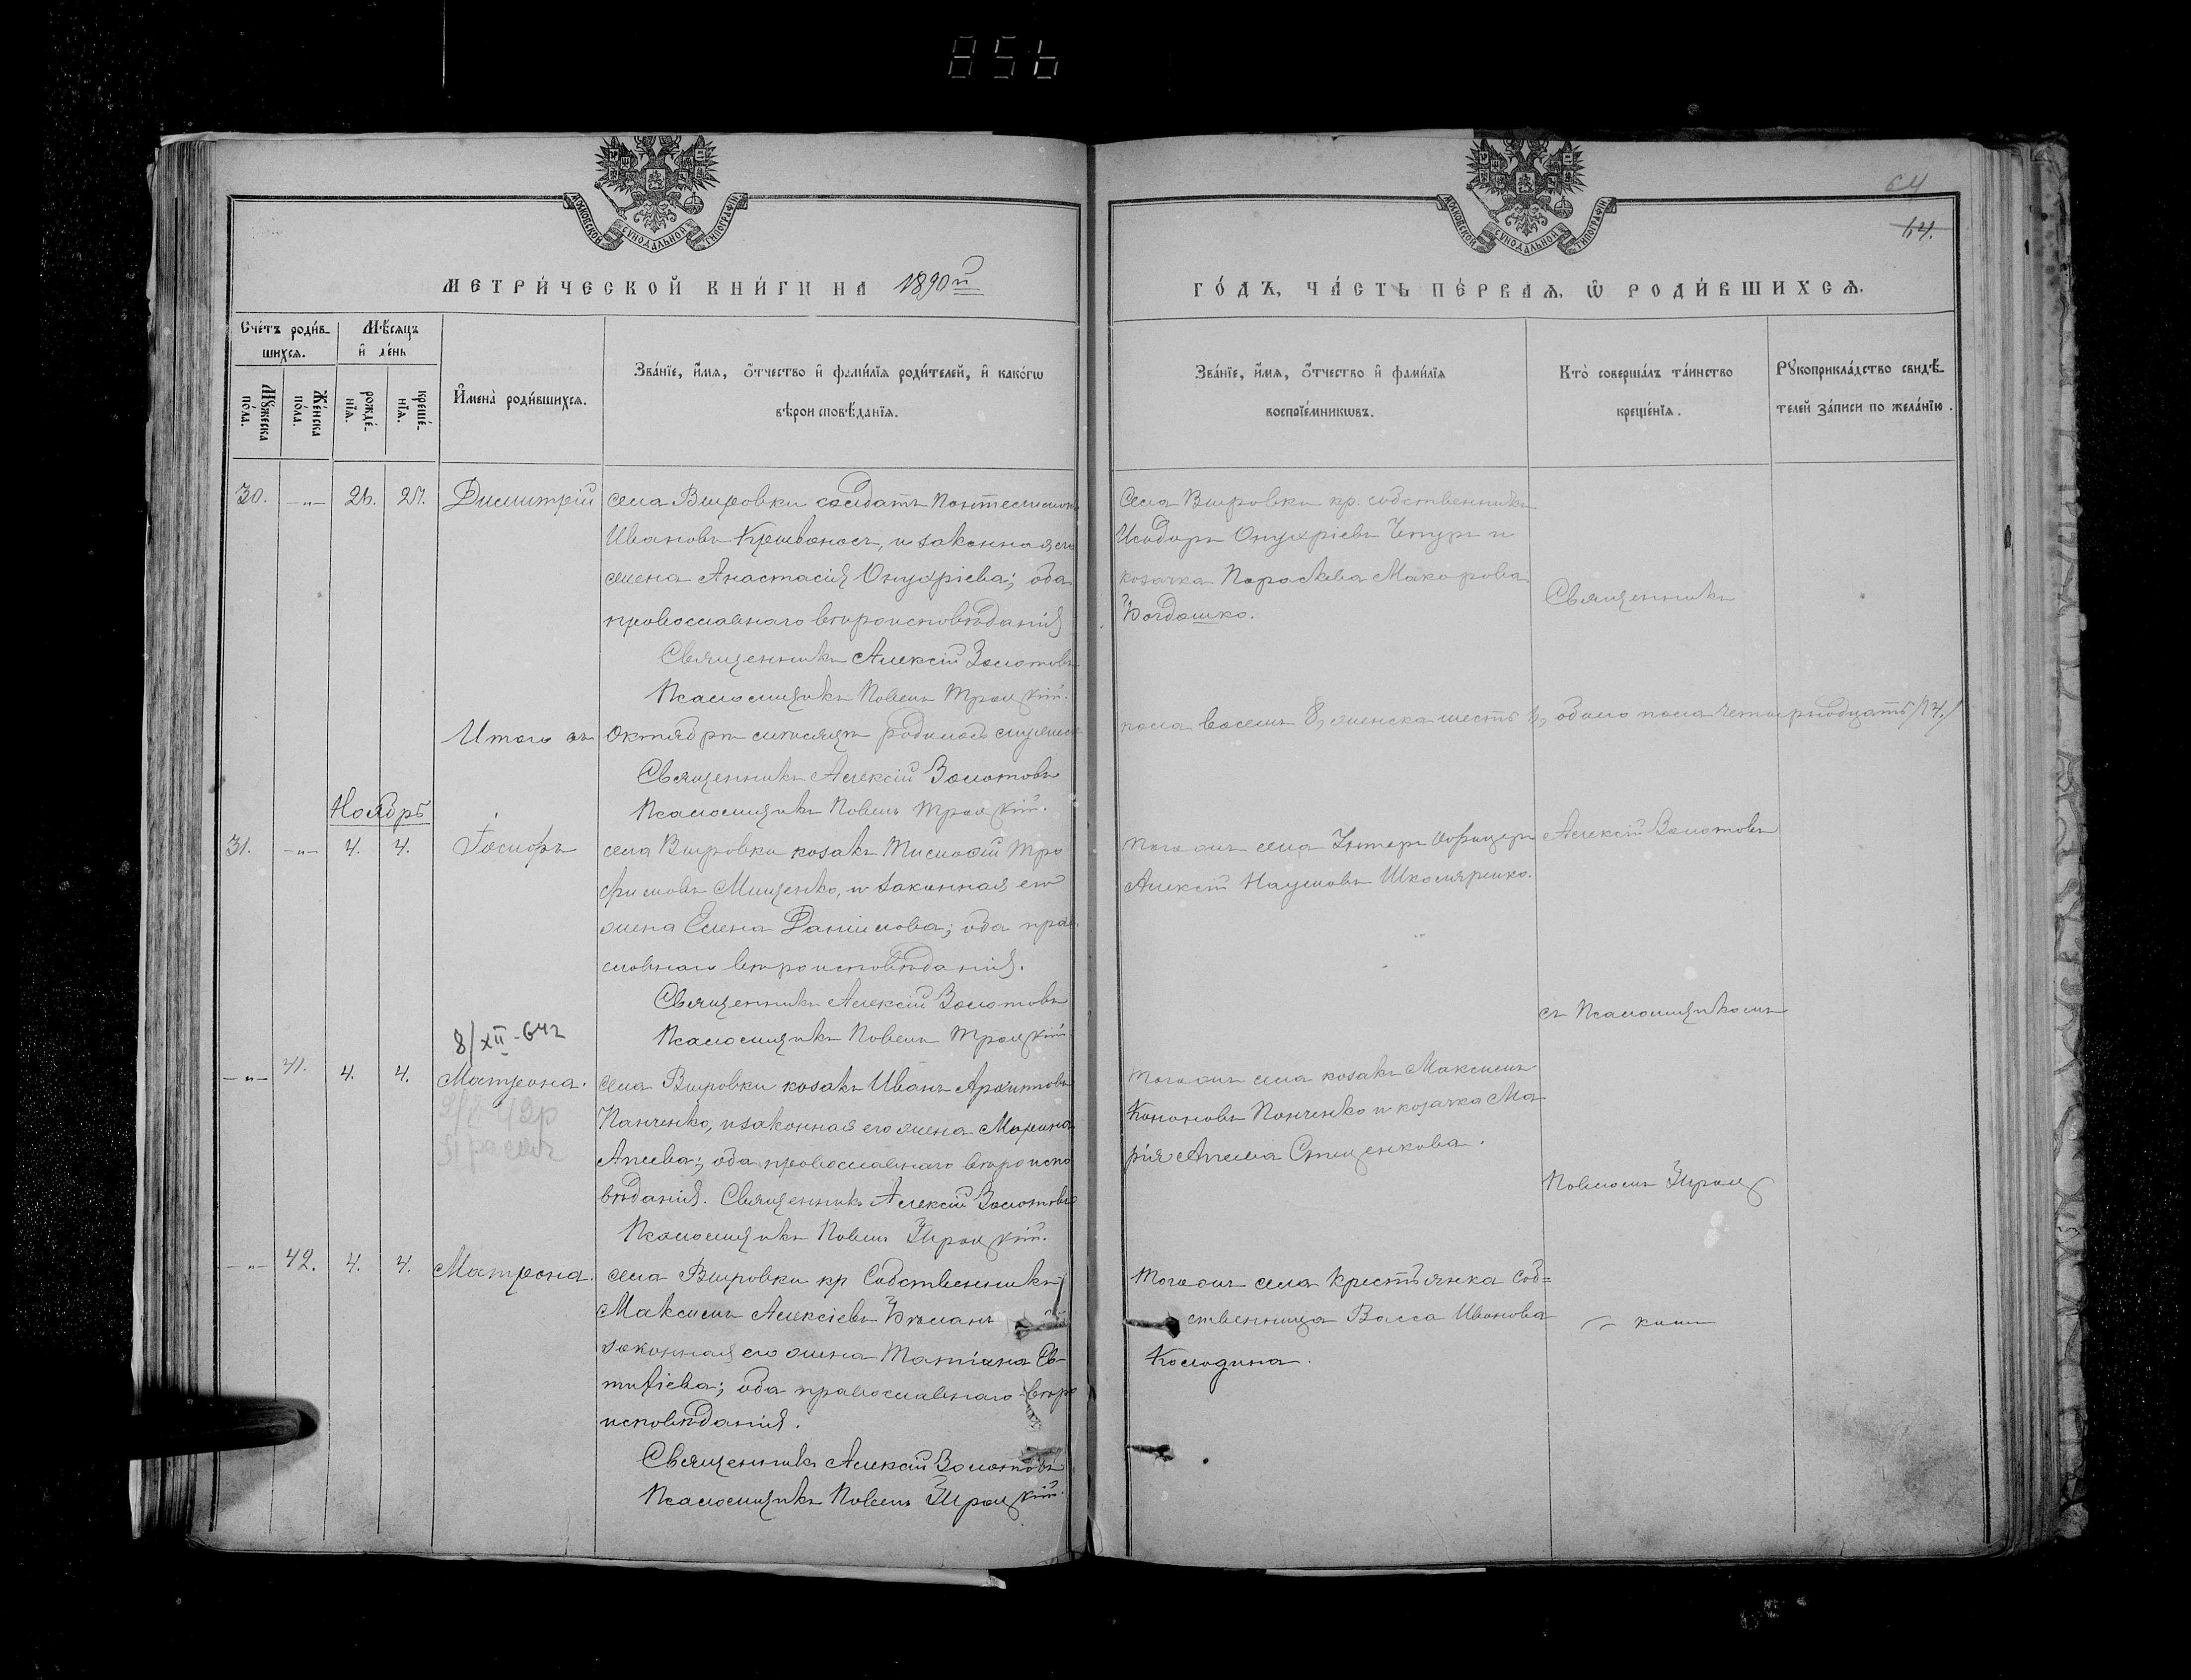 856
64
64.
МОСКОВСКОЙ СУНОДАЛЬНОЙ ТИПОГРАФІИ
МОСКОВСКОЙ СУНОДАЛЬНОЙ ТИПОГРАФІИ
МЕТРИ́ЧЕСКОЙ КНИ́ГИ НА 1890й
ГО́ДЪ, ЧА́СТЬ ПЕ́РВАѦ, Ѡ҆ РОДИ́ВШИХСѦ.
Сче́тъ роди́в-
шихсѧ.
Мꙋ́жеска по́ла.
Же́нска по́ла.
Мѣ́сѧцъ
и҆ де́нь
рожде́-нїѧ.
креще́-нїѧ.
И҆мена̀ роди́вшихсѧ.
Зва́нїе, и҆́мѧ, ѻ҆́тчество и҆ фами́лїѧ роди́телей, и҆ како́гѡ
вѣроисповѣ́данїѧ.
Зва́нїе, и҆́мѧ, ѻ҆́тчество и҆ фами́лїѧ
воспрїе́мникѡвъ.
Кто̀ соверша́лъ та́инство
креще́нїѧ.
Рꙋкоприкла́дство свидѣ́-
телей за́писи по жела́нїю.
30. -„- 26. 27. Димитрій
села Вировки солдатъ Пантелимонъ
Ивановъ Кривоносъ, и законная его
жена Анастасія Онуфріева; оба
православнаго вѣроисповѣданія
Священникъ Алексій Золотовъ
Псаломщикъ Павелъ Троицкій.
Села Вировки кр. собственникъ
Исидоръ Онуфріевъ Чигуръ и
козачка Параскева Макарова
Богдашко.
Священникъ
Итого въ Октябрѣ мѣсяцѣ родилось мужеск
пола восемь 8, женска шесть 6, обоего пола четырнадцать /14./
Священникъ Алексій Золотовъ
Псаломщикъ Павелъ Троицкій.
Ноябрь
31. -„- 4. 4. Іосифъ
села Вировки козакъ Тимофей Тро
фимовъ Мищенко, и законная его
жена Елена Даніилова; оба прав
славнаго вѣроисповѣданія.
Священникъ Алексій Золотовъ
Псаломщикъ Павелъ Троицкій
Того жъ села Унтеръ Офицеръ
Алексій Наумовъ Школяренко.
Алексій Золотовъ
съ Псаломщикомъ
8/XII-64г
-„- 41. 4. 4. Матрона.
села Вировки козакъ Иванъ Архиповъ
Панченко, и законная его жена Марина
оба православнаго вѣроиспо
вѣданія. Священникъ Алексій Золотовъ
Псаломщикъ Павелъ Троицкій.
Того жъ села козакъ Максимъ
Кононовъ Панченко и козачка Ма
рія Стеценкова.
Павломъ Троиц
-„- 42. 4. 4. Матрона.
села Вировки кр Собственникъ
Максимъ Алексіевъ
законная его жена Татіана Ев
тихіева; оба православнаго вѣро
исповѣданія.
Священникъ Алексій Золотовъ
Псаломщикъ Павелъ Троицкій.
Того жъ села крестьянка соб=
ственница Васса Иванова
Колодина.
кимъ